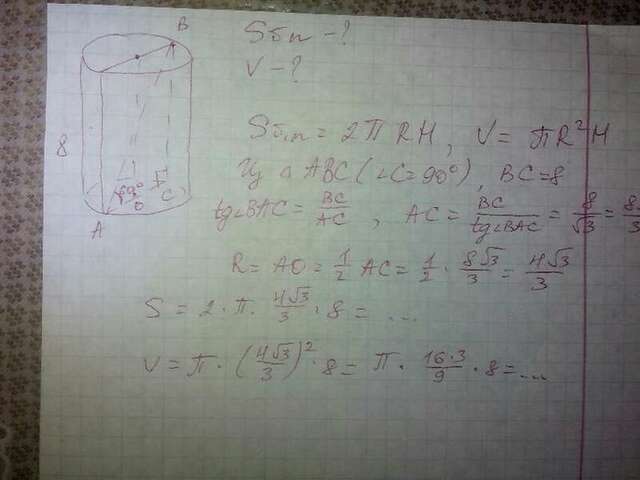 B
Sбп - ?
V - ?
8
60°
O
C
A
Sб.п = 2πRH, V = πR²H
Из △ABC (∠C=90°), BC=8
tg∠BAC = BC/AC, AC = BC/tg∠BAC = 8/√3 = 8
R = AO = 1/2 AC = 1/2 · 8√3/3 = 4√3/3
S = 2·π· 4√3/3 · 8 = ...
V = π·(4√3/3)²·8 = π· 16·3/9 ·8 = ...